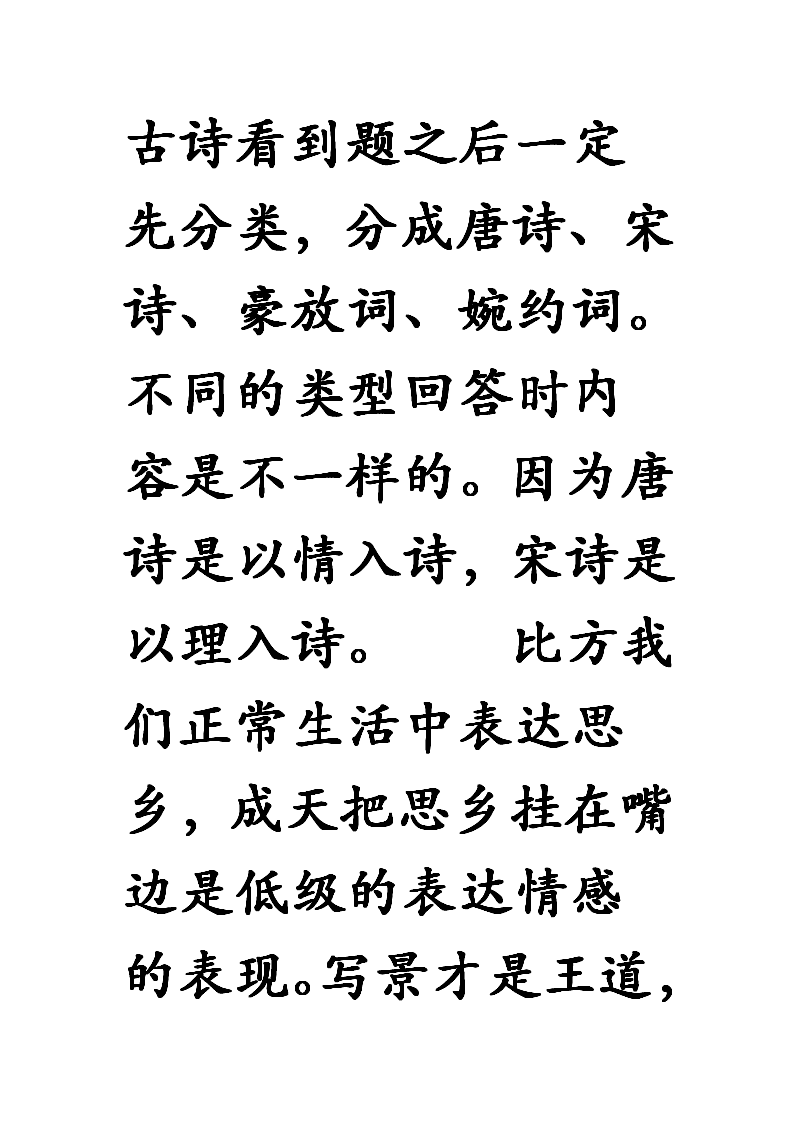 古诗看到题之后一定
先分类，分成唐诗、宋
诗、豪放词、婉约词。
不同的类型回答时内
容是不一样的。因为唐
诗是以情入诗，宋诗是
以理入诗。　　比方我
们正常生活中表达思
乡，成天把思乡挂在嘴
边是低级的表达情感
的表现。写景才是王道，